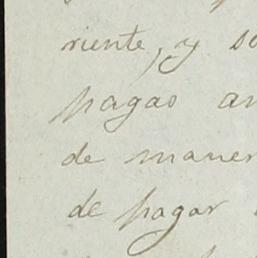 riente, y so
pagas an
de maner
de pagar